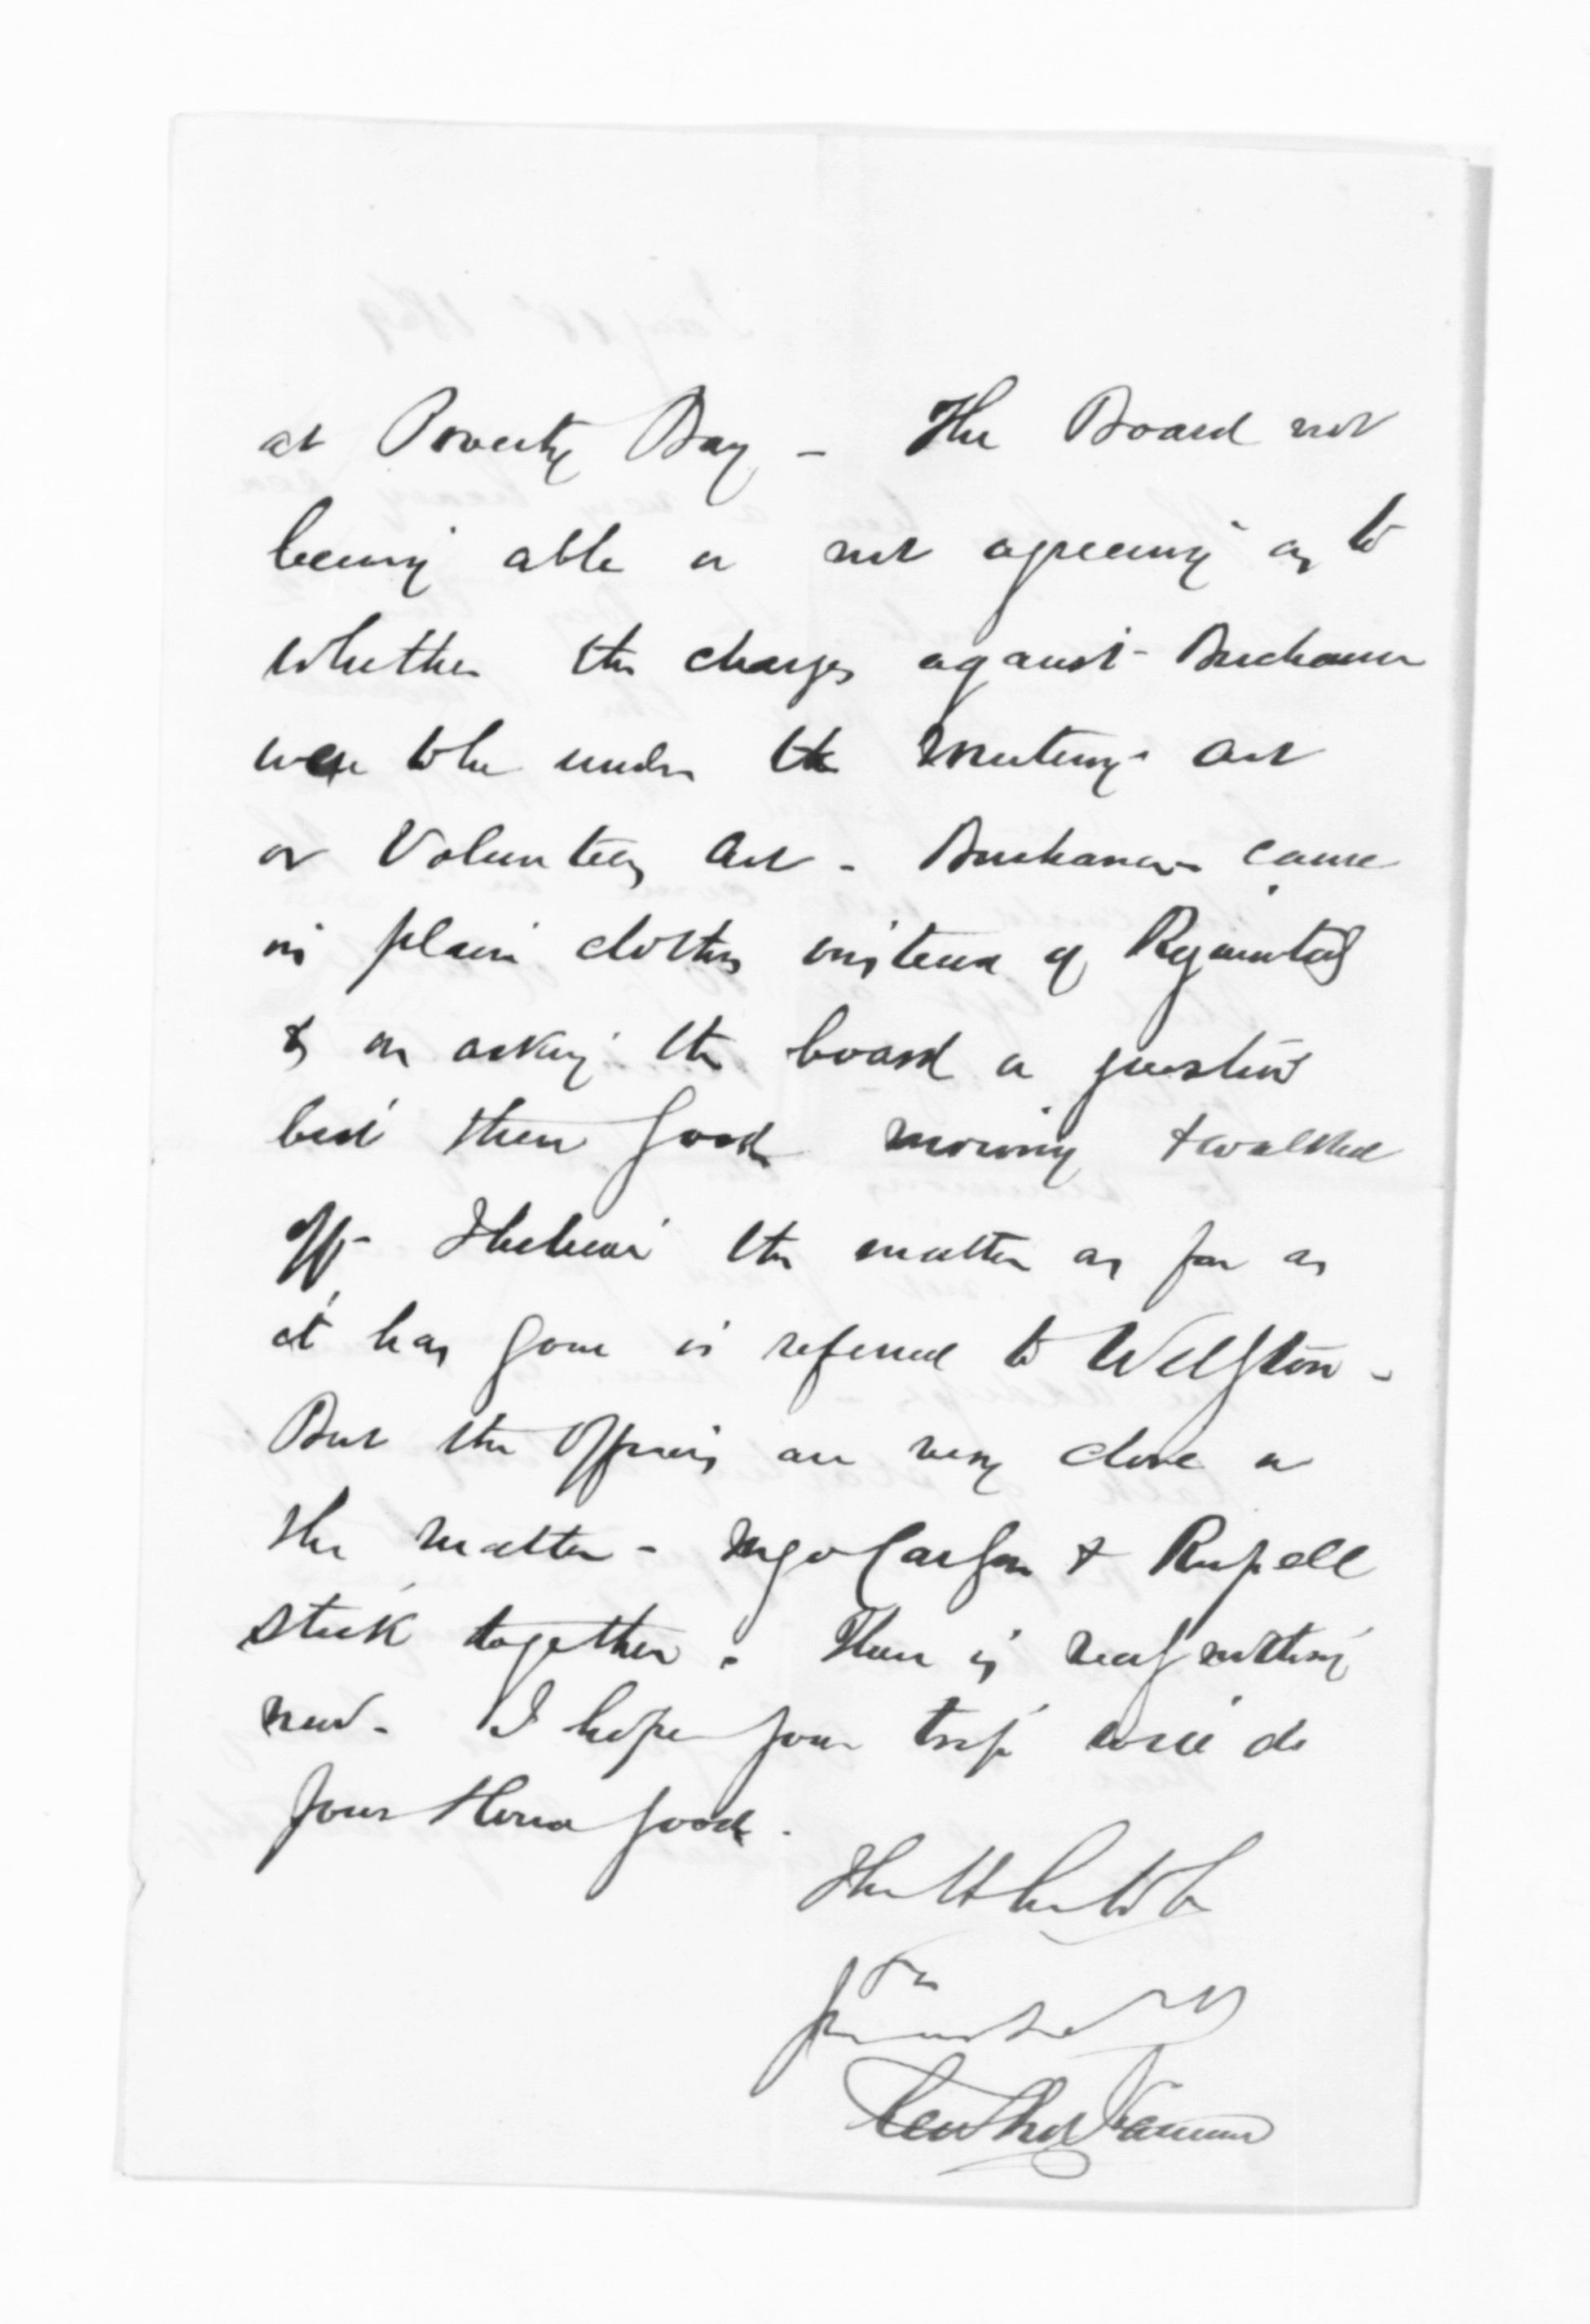 at Poverty Bay - The Board not
being able or not agreeing as to
whether the charges against Buchanan
were to be under the Muteny Act
or Volunteers Act - Buchanan came
in plain clothes instead of Regimentals
& on asking the board a question
bid them good morning & walked
off - I believe the matter as far as
it has gone is referred to Welgton -
But the Officers are very close on
the matter - Russell
stick together. There is really nothing
new - I hope your trip will do
your Hona good.